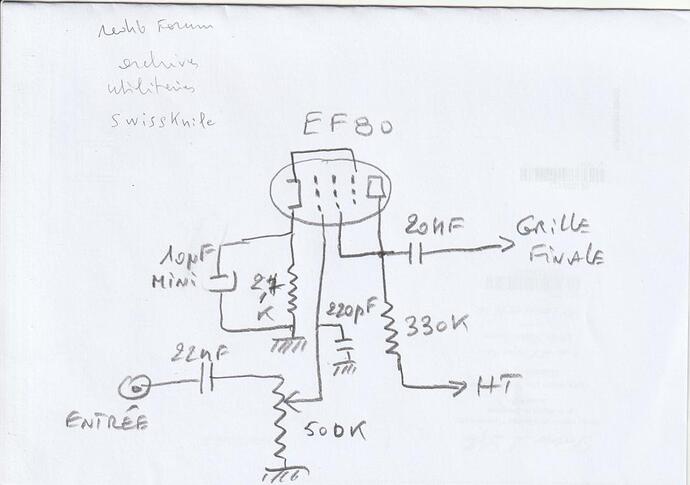 Forum
archives
utilitaires
SwissKnife
EF80
20nF
GRILLE
FINALE
10µF
MINI
2,7
K
220pF
330K
22nF
HT
ENTRÉE
500K